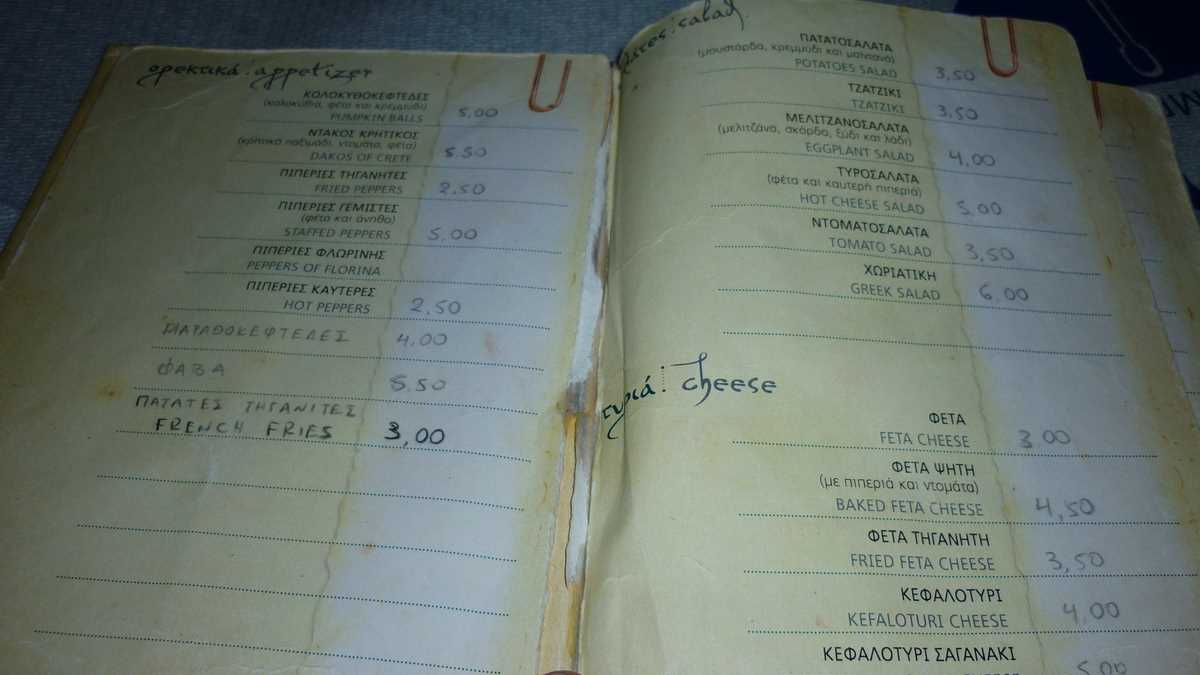 ορεκτικά : appetizer
ΚΟΛΟΚΥΘΟΚΕΦΤΕΔΕΣ
(κολοκύθα, φέτα και κρεμμύδι)
PUMPKIN BALLS 5,00
ΝΤΑΚΟΣ ΚΡΗΤΙΚΟΣ
(κρητικό παξιμάδι, ντομάτα, φέτα)
DAKOS OF CRETE 5.50
ΠΙΠΕΡΙΕΣ ΤΗΓΑΝΗΤΕΣ
FRIED PEPPERS 2,50
ΠΙΠΕΡΙΕΣ ΓΕΜΙΣΤΕΣ
(φέτα και άνηθο)
STAFFED PEPPERS 5.00
ΠΙΠΕΡΙΕΣ ΦΛΩΡΙΝΗΣ
PEPPERS OF FLORINA
ΠΙΠΕΡΙΕΣ ΚΑΥΤΕΡΕΣ
HOT PEPPERS 2,50
ΜΑΡΑΘΟΚΕΦΤΕΔΕΣ 4.00
ΦΑΒΑ 5.50
ΠΑΤΑΤΕΣ ΤΗΓΑΝΙΤΕΣ
FRENCH FRIES 3,00
salad
ΠΑΤΑΤΟΣΑΛΑΤΑ
(μουστάρδα, κρεμμύδι και μαϊντανό)
POTATOES SALAD 3,50
ΤΖΑΤΖΙΚΙ
TZATZIKI 3,50
ΜΕΛΙΤΖΑΝΟΣΑΛΑΤΑ
(μελιτζάνα, σκόρδο, ξύδι και λάδι)
EGGPLANT SALAD 4,00
ΤΥΡΟΣΑΛΑΤΑ
(φέτα και καυτερή πιπεριά)
HOT CHEESE SALAD 5,00
ΝΤΟΜΑΤΟΣΑΛΑΤΑ
TOMATO SALAD 3,50
ΧΩΡΙΑΤΙΚΗ
GREEK SALAD 6,00
τυριά : cheese
ΦΕΤΑ
FETA CHEESE 3.00
ΦΕΤΑ ΨΗΤΗ
(με πιπεριά και ντομάτα)
BAKED FETA CHEESE 4,50
ΦΕΤΑ ΤΗΓΑΝΗΤΗ
FRIED FETA CHEESE 3,50
ΚΕΦΑΛΟΤΥΡΙ
KEFALOTURI CHEESE 4.00
ΚΕΦΑΛΟΤΥΡΙ ΣΑΓΑΝΑΚΙ
5,00